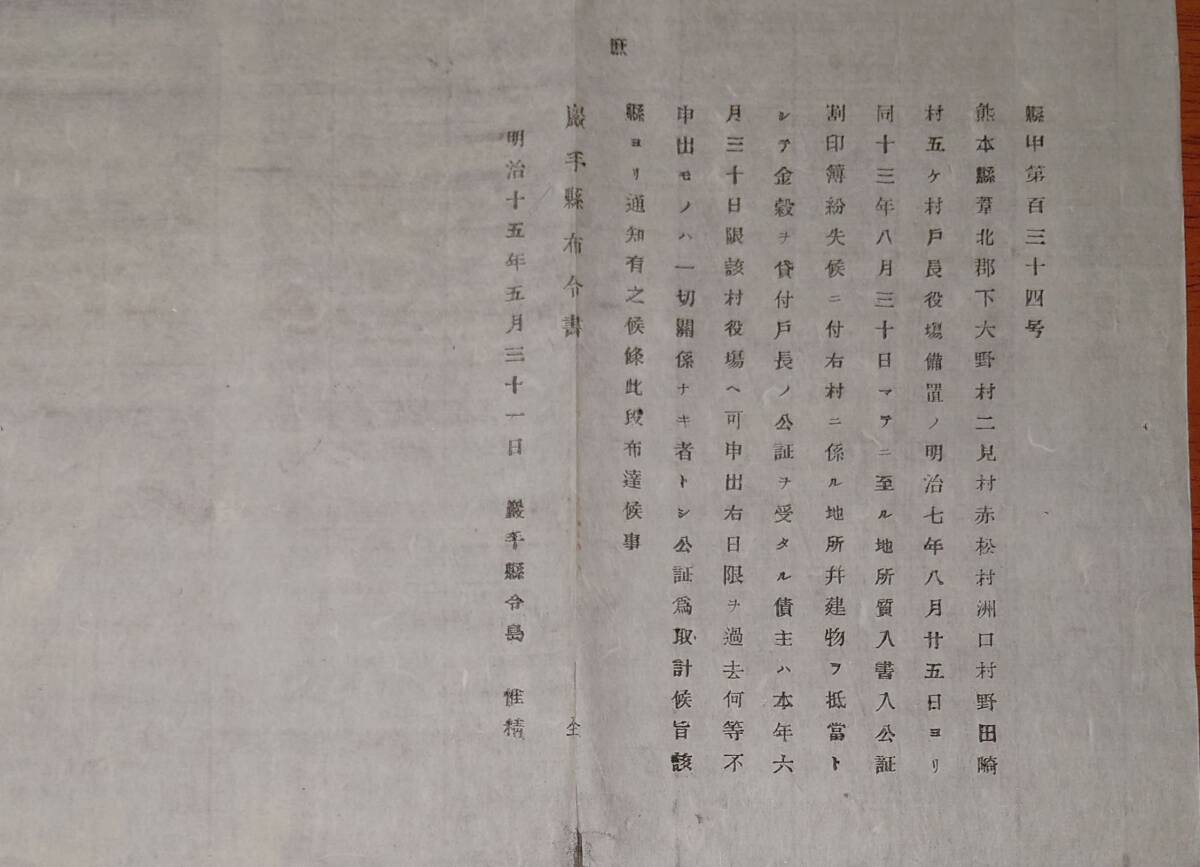 縣甲第百三十四号
熊本縣葦北郡下大野村二見村赤松村洲口村野田﨑
村五ケ村戸長役塲備置ノ明治七年八月廿五日ヨリ
同十三年八月三十日マテニ至ル地所質入書入公証
割印簿紛失候ニ付右村ニ係ル地所幷建物ヲ抵當ト
シテ金穀ヲ貸付戸長ノ公証ヲ受タル債主ハ本年六
月三十日限該村役塲ヘ可申出右日限ヲ過去何等不
申出モノハ一切關係ナキ者トシ公証爲取計候旨該
縣ヨリ通知有之候條此段布達候事
庶
巖手縣布令書 全
明治十五年五月三十一日 巖手縣令島 惟精